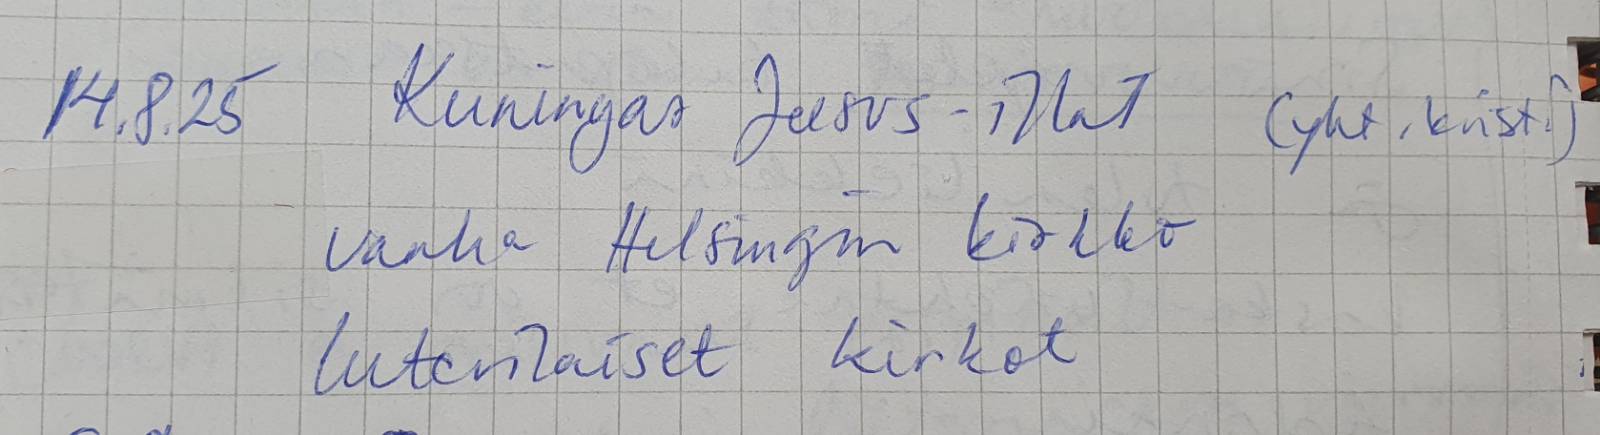 14.8.25 Kuningas Jeesus-illat (yht. krist.)
vanha Helsingin kirkko
luterilaiset kirkot